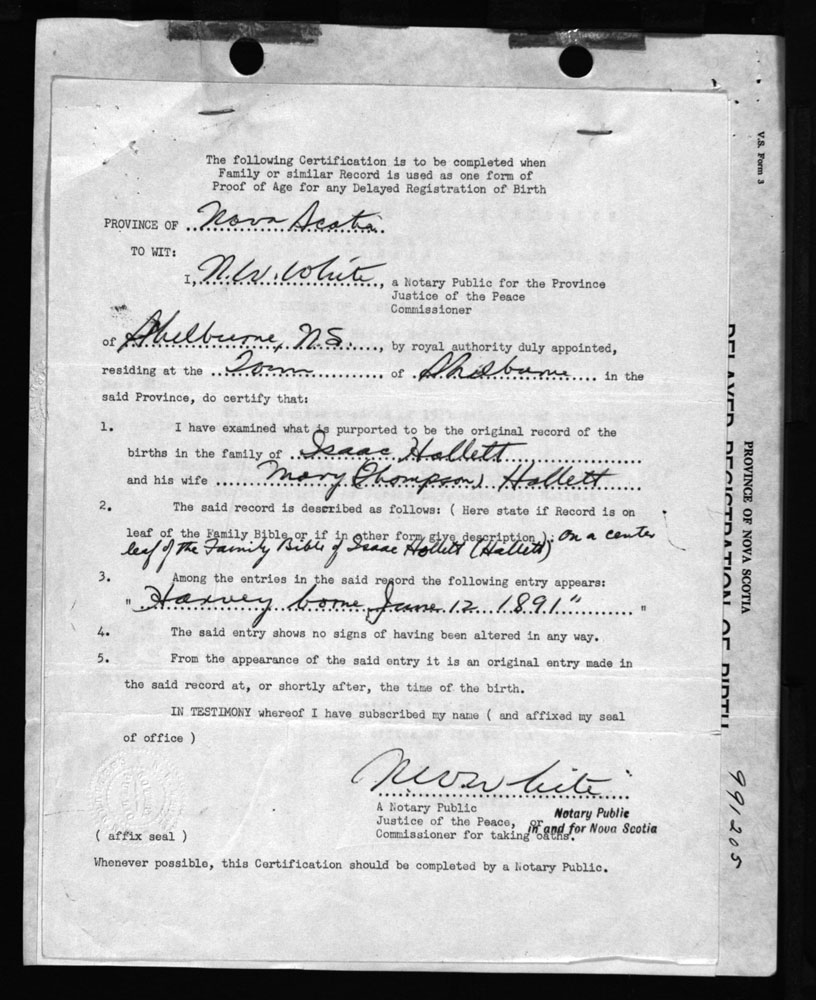 The following Certification is to be completed when
Family or similar Record is used as one form of
Proof of Age for any Delayed Registration of Birth
PROVINCE OF Nova Scotia
TO WIT:
I, N.W. White, a Notary Public for the Province
Justice of the Peace
Commissioner
of Shelburne, N.S. , by royal authority duly appointed,
residing at the Town of Shelburne in the
said Province, do certify that:
1. I have examined what is purported to be the original record of the
births in the family of Isaac Hallett
and his wife Mary (Thompson) Hallett
2. The said record is described as follows: ( Here state if Record is on
leaf of the Family Bible or if in other form give description ): On a center
leaf of the Family Bible of Isaac Hollett (Hallett)
3. Among the entries in the said record the following entry appears:
" Harvey borne June 12 1891" "
4. The said entry shows no signs of having been altered in any way.
5. From the appearance of the said entry it is an original entry made in
the said record at, or shortly after, the time of the birth.
IN TESTIMONY whereof I have subscribed my name ( and affixed my seal
of office )
N W White
A Notary Public
Justice of the Peace, or
Commissioner for taking oaths.
Notary Public
in and for Nova Scotia
( affix seal )
Whenever possible, this Certification should be completed by a Notary Public.
V.S. Form 3
PROVINCE OF NOVA SCOTIA
DELAYED REGISTRATION OF BIRTH
991205